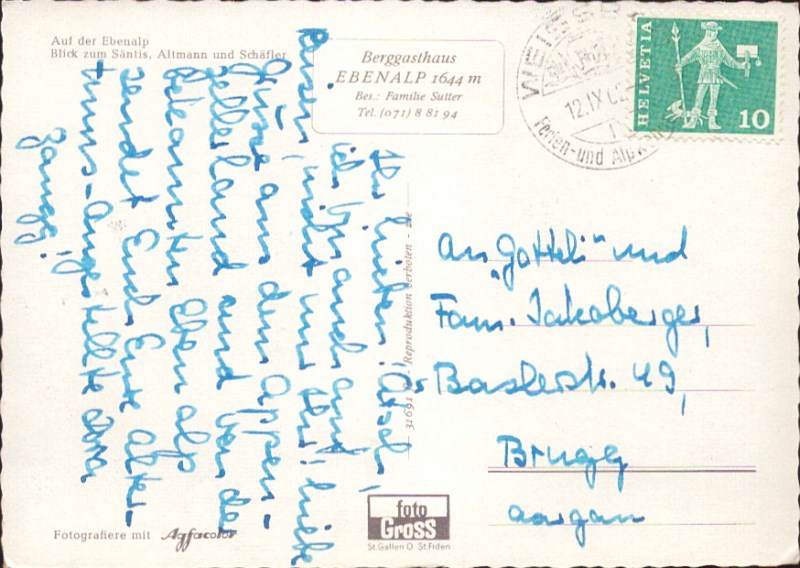 Auf der Ebenalp
Blick zum Säntis, Altmann und Schäfler
Berggasthaus
EBENALP 1644 m
Bes.: Familie Sutter
Tel. (071) 8 81 94
WEISSB
12.IX.6
Ferien- und Alpw
HELVETIA
10
Ihr lieben! Ätsch,
ich auch auf
Reisen, nicht nur Ihr! Liebe
Grüsse aus dem Appen-
zellerland und von der
bekannten Ebenalp
sendet Euch Eure Alter-
tums-Angestellte Dora
Zaugg!
31691 - Reproduktion verboten -
An "Gotteli" und
Fam. Jakoberger,
Baslerstr. 49,
Brugg
Aargau
Fotografiere mit Agfacolor
foto
Gross
St. Gallen O St. Fiden